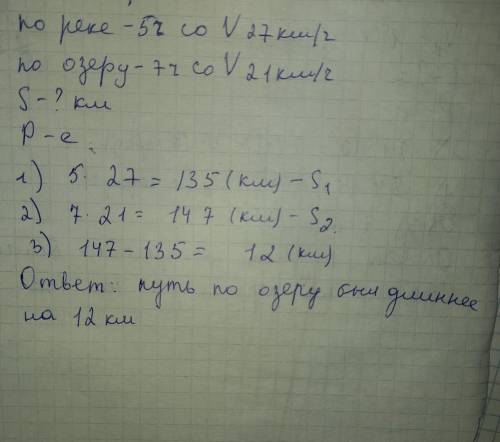 по реке - 5ч со V 27км/ч
по озеру - 7ч со V 21км/ч
S - ? км
Р - е
1) 5 · 27 = 135 (км) - S₁
2) 7 · 21 = 147 (км) - S₂
3) 147 - 135 = 12 (км)
Ответ: путь по озеру был длиннее
на 12 км